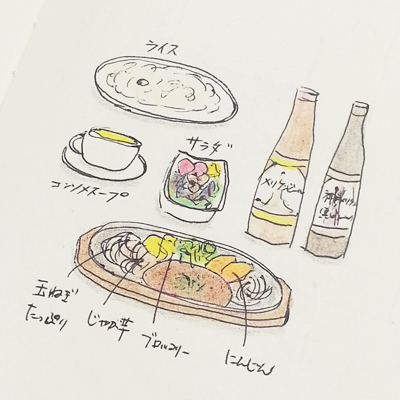 ライス
コンソメスープ
サラダ
玉ねぎ
たっぷり
じゃが芋
ブロッコリー
にんじん